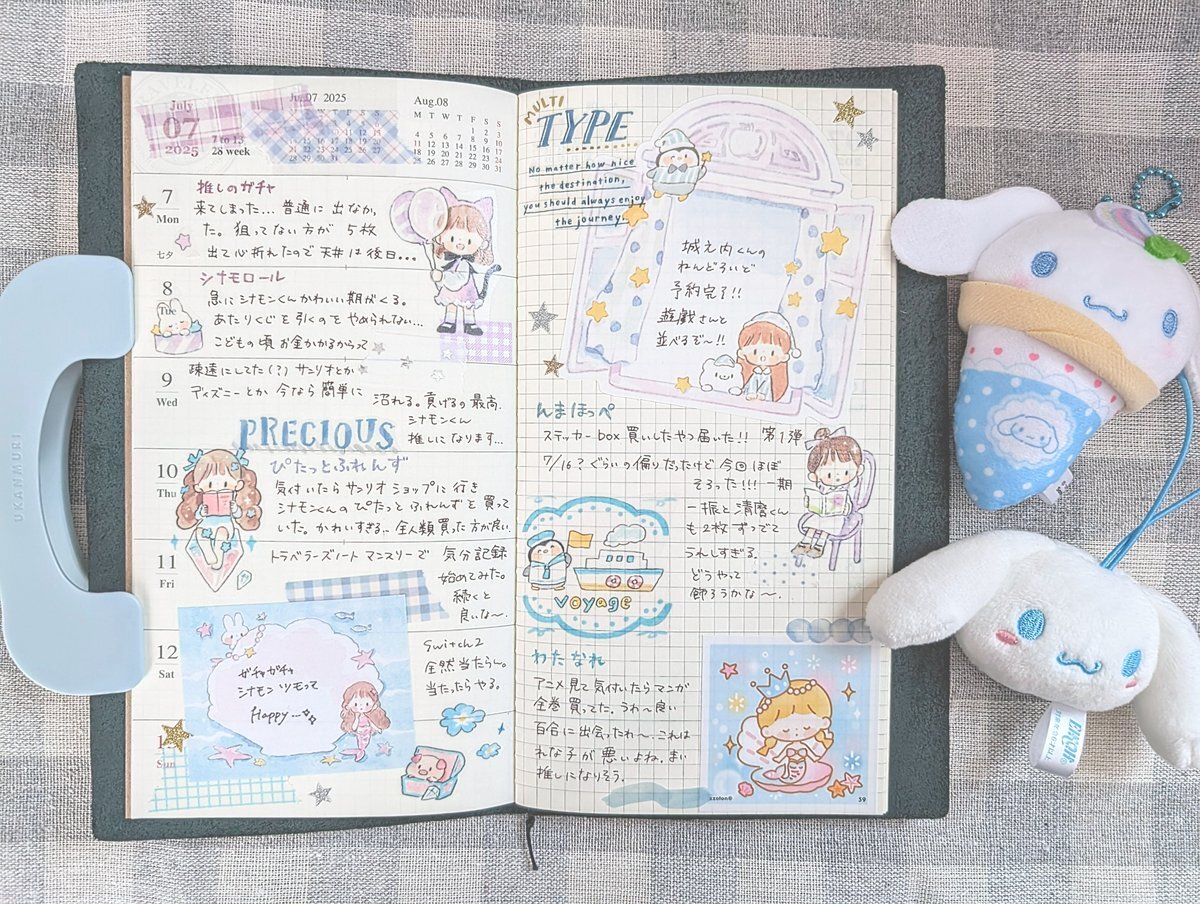 July
07
2025
7 to 13
28 week
Jul.07 2025
Aug.08
M T W T F S S
1 2 3
4 5 6 7 8 9 10
11 12 13 14 15 16 17
18 19 20 21 22 23 24
25 26 27 28 29 30 31
7
Mon
七夕
推しのガチャ
来てしまった…普通に出なか
た。狙ってない方が 5枚
出て心折れたので天井は後日…
8
Tue
シナモロール
急にシナモンくんかわいい期がくる。
あたりくじを引くのをやめられない…
こどもの頃お金かかるからって
9
Wed
疎遠にしてた(?)サンリオとか
ディズニーとか今なら簡単に
沼れる。貢げるの最高。
シナモンくん
推しになります…
PRECIOUS
10
Thu
ぴたっとふれんず
気付いたらサンリオショップに行き
シナモンくんのぴたっとふれんずと買って
いた。かわいすぎる…全人類買った方が良い
11
Fri
トラベラーズノートマンスリーで気分記録
始めてみた。
続くと
良いな〜。
12
Sat
Switch2
全然当たらん。
当たったらやる。
ガチャガチャ
シナモンツモって
Happy…
Sun
MULTI
TYPE
No matter how nice
the destination,
you should always enjoy
the journey.
城之内くんの
ねんどろいど
予約完了!!
遊戯さんと
並べるぞ〜!!
んまほっぺ
ステッカーbox買いしたやつ届いた!! 第1弾
7/16?ぐらいの偏りだったけど今回ほぼ
そろった!!! 一期
一振と清麿くん
も2枚ずつでて
うれしすぎる。
どうやって
飾ろうかな〜。
voyage
わたなれ
アニメ見て気付いたらマンガ
全巻買ってた。うわ〜良い
百合に出会ったわ〜。これは
れな子が悪いよね。まい
推しになりそう。
59
UKANMURI